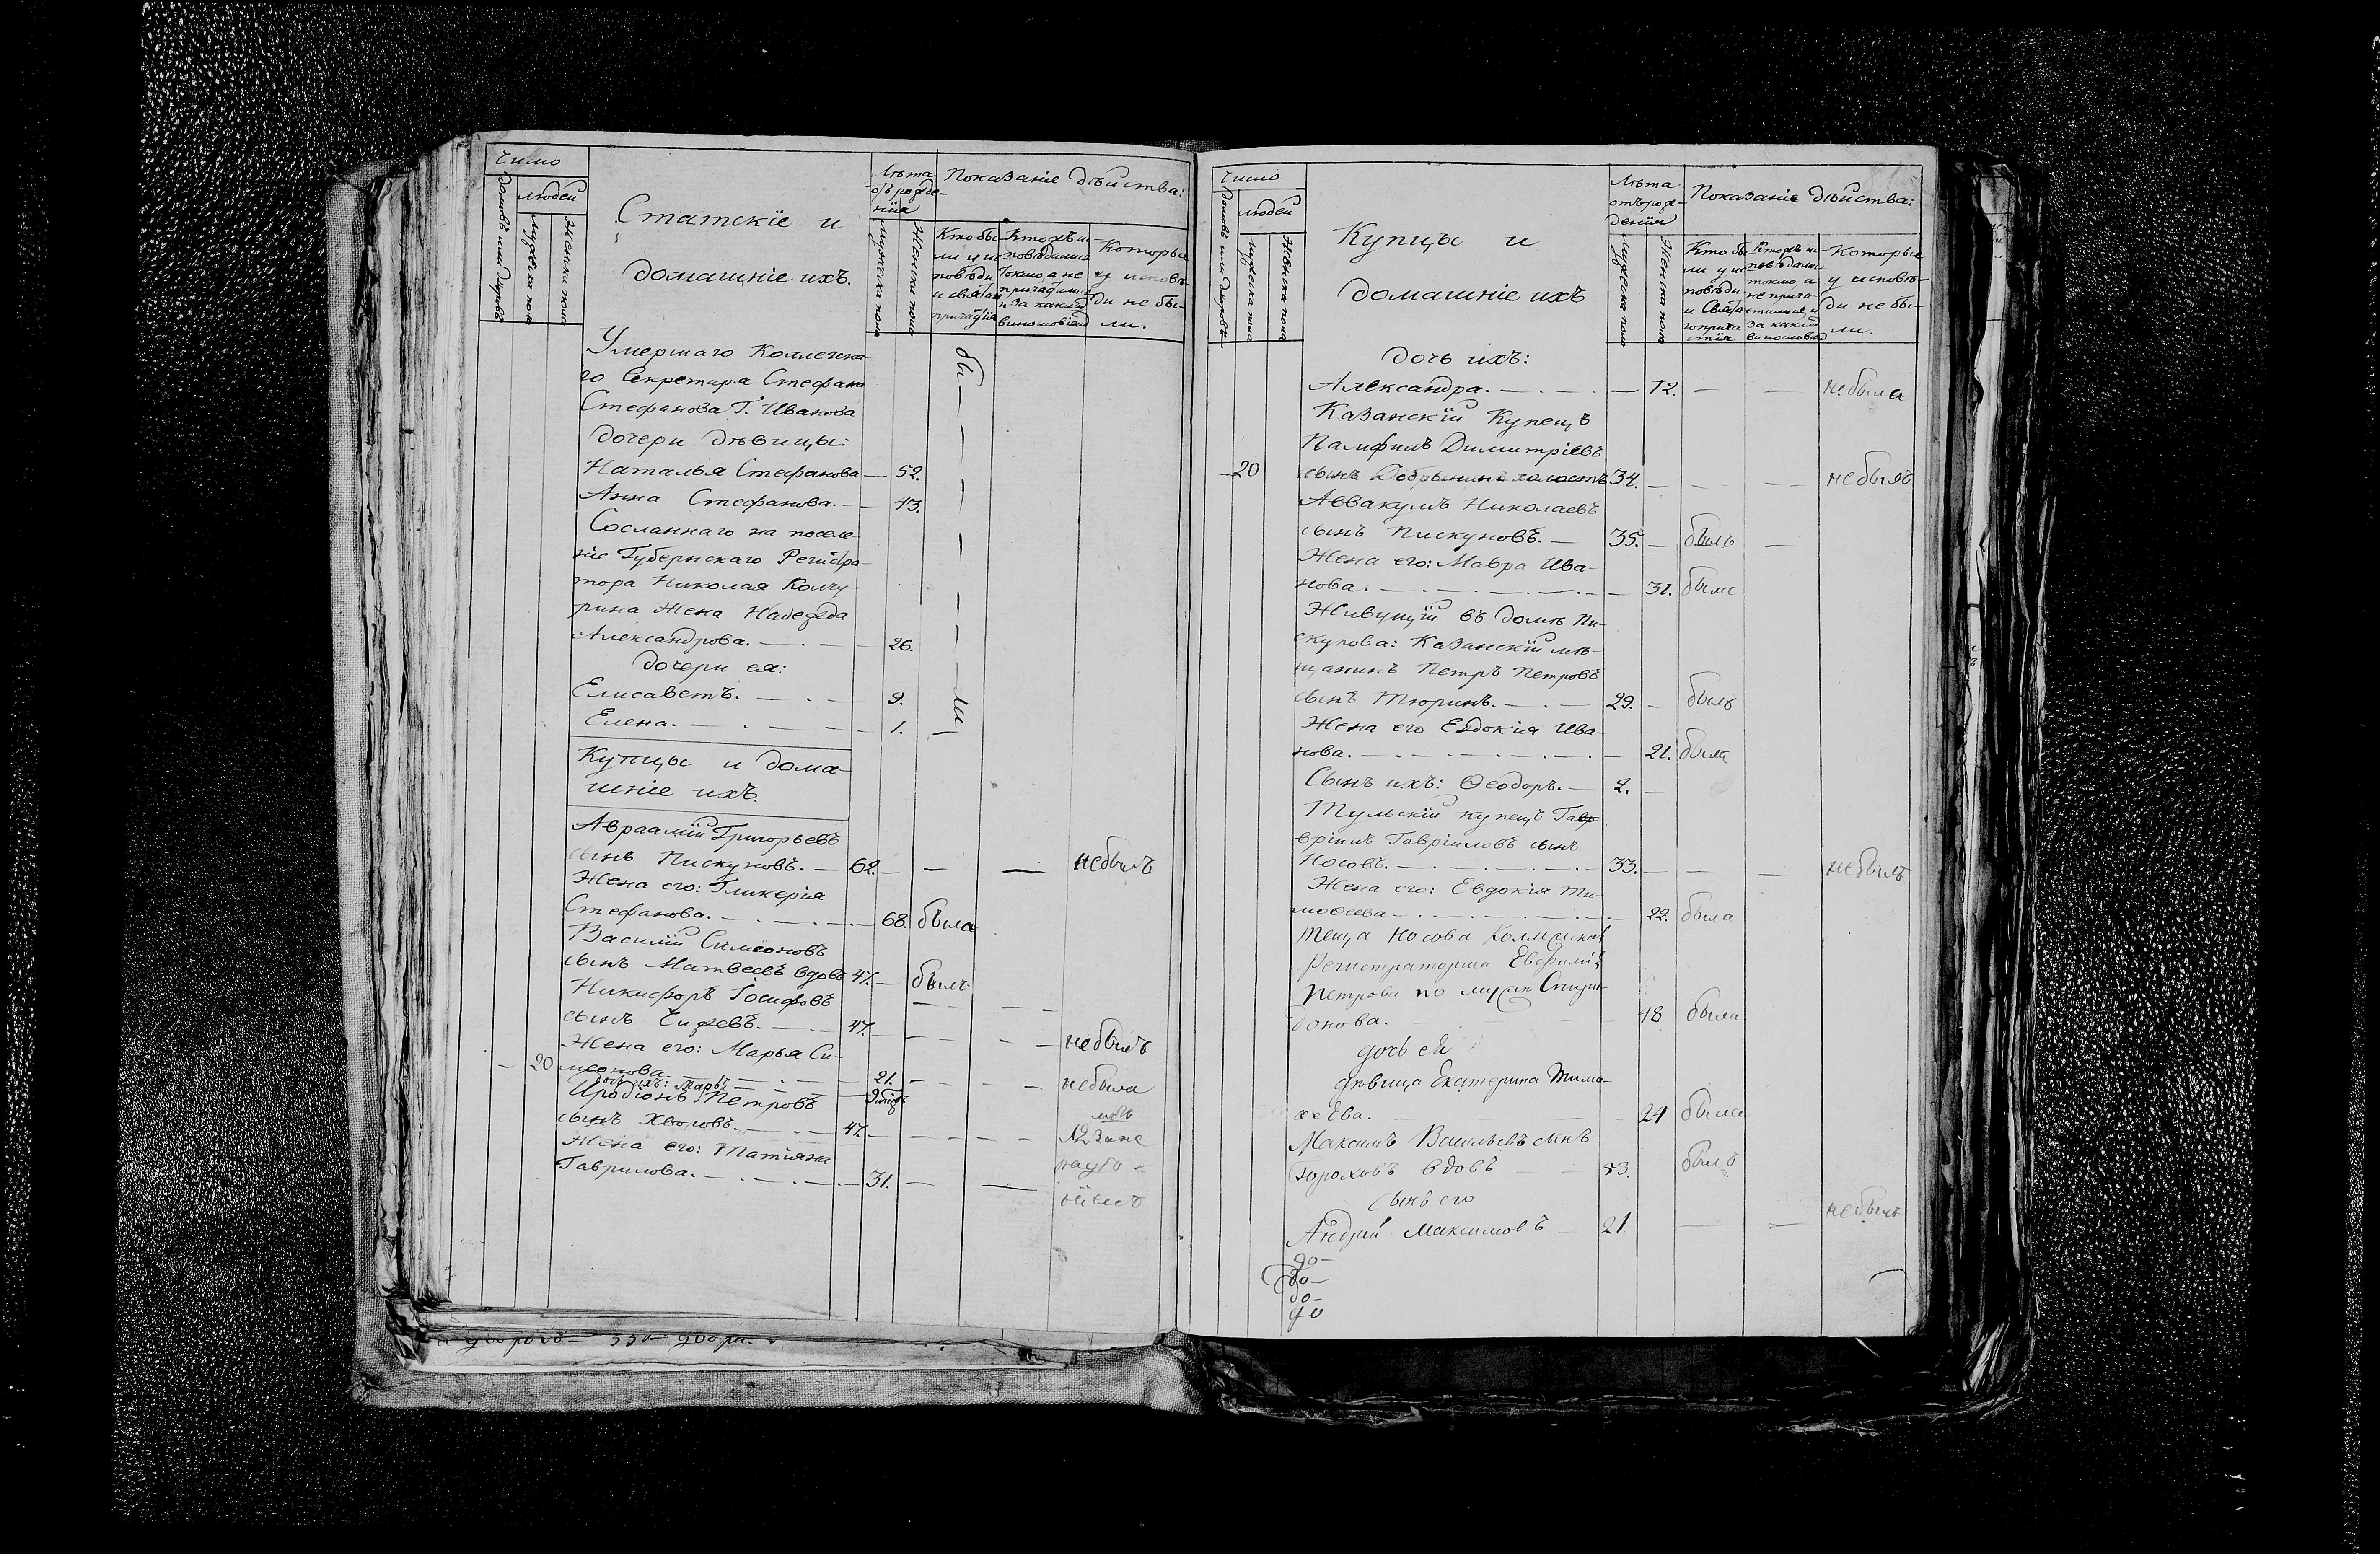 Число
Людей
Домовъ или дворовъ
Мужеска пола
Женска пола
Статскіе и
домашніе ихъ.
Лѣта
отъ рожде-
нія
Мужеска пола
Женска пола
Показаніе дѣйства:
Кто бы-
ли у ис
повѣди
и святаго
причастія
Кто жъ ис-
повѣдались
токмо, а не
причастились
и за какимъ
винословіемъ
Которые
у исповѣ-
ди не бы-
ли.
Умершаго Коллежска-
го Секретаря Стефана
Стефанова Г. Иванова
дочери дѣвицы:
Наталья Стефанова — 52.
Анна Стефанова. — 43.
Сосланнаго на поселе-
ніе Губернскаго Регистра-
тора Николая Колчу-
рина Жена Надежда
Александрова. — 26.
дочери ея:
Елисаветъ. — 9.
Елена. — 1.
бы — ли
Купцы и дома-
шніе ихъ.
Авраамій Григорьевъ
сынъ Пискуновъ. — 62. — небылъ
Жена его: Гликерія
Стефанова. — 68. была
Василій Симеоновъ
сынъ Матвеевъ вдовъ 47. — былъ
Никифоръ Іосифовъ
сынъ Чижевъ. — 47. — небылъ
Жена его: Марья Си-
20 меонова. — 21. — небыла
дочь ихъ: Марья
Иродіонъ Петровъ
сынъ — 47.
Жена его: Татіяна
Гаврилова. — 31. —
Число
Людей
Домовъ или дворовъ
Мужеска пола
Женска пола
Купцы и
домашніе ихъ
Лѣта
отъ рож-
денія
Мужеска пола
Женска пола
Показаніе дѣйства:
Кто бы
ли у ис
повѣди
и Свята
го прича
стія
Кто жъ ис-
повѣдались
токмо, а
не прича-
стились, и
за какимъ
винословіемъ
Которые
у исповѣ-
ди не бы-
ли.
дочь ихъ:
Александра. — 12. — небыла
Казанскій Купецъ
Памфилъ Димитріевъ
20 сынъ Добрынинъ холостъ 34. — небылъ
Аввакумъ Николаевъ
сынъ Пискуновъ. — 35. — былъ —
Жена его: Мавра Ива-
нова. — 31. была
Живущій въ домѣ Пи-
скунова: Казанскій мѣ-
щанинъ Петръ Петровъ
сынъ Тюринъ. — 29. — былъ
Жена его Евдокія Ива-
нова. — 21. была
Сынъ ихъ: Ѳеодоръ. — 2. —
Тульскій купецъ Гавр
вріилъ Гавріиловъ сынъ
Носовъ. — 33. — небылъ
Жена его: Евдокія Ти-
моѳеева — 22. была
теща Носова
Регистраторша Евфимія
Петрова по мужѣ Спири-
донова. — 48 была
дочь ея
дѣвица Екатерина Тимо-
хеева. — 24 была
Максимъ Васильевъ сынъ
Гороховъ вдовъ — 53. былъ
сынъ его
Андрей Максимовъ — 21. — небылъ
до-
до-
до-
до